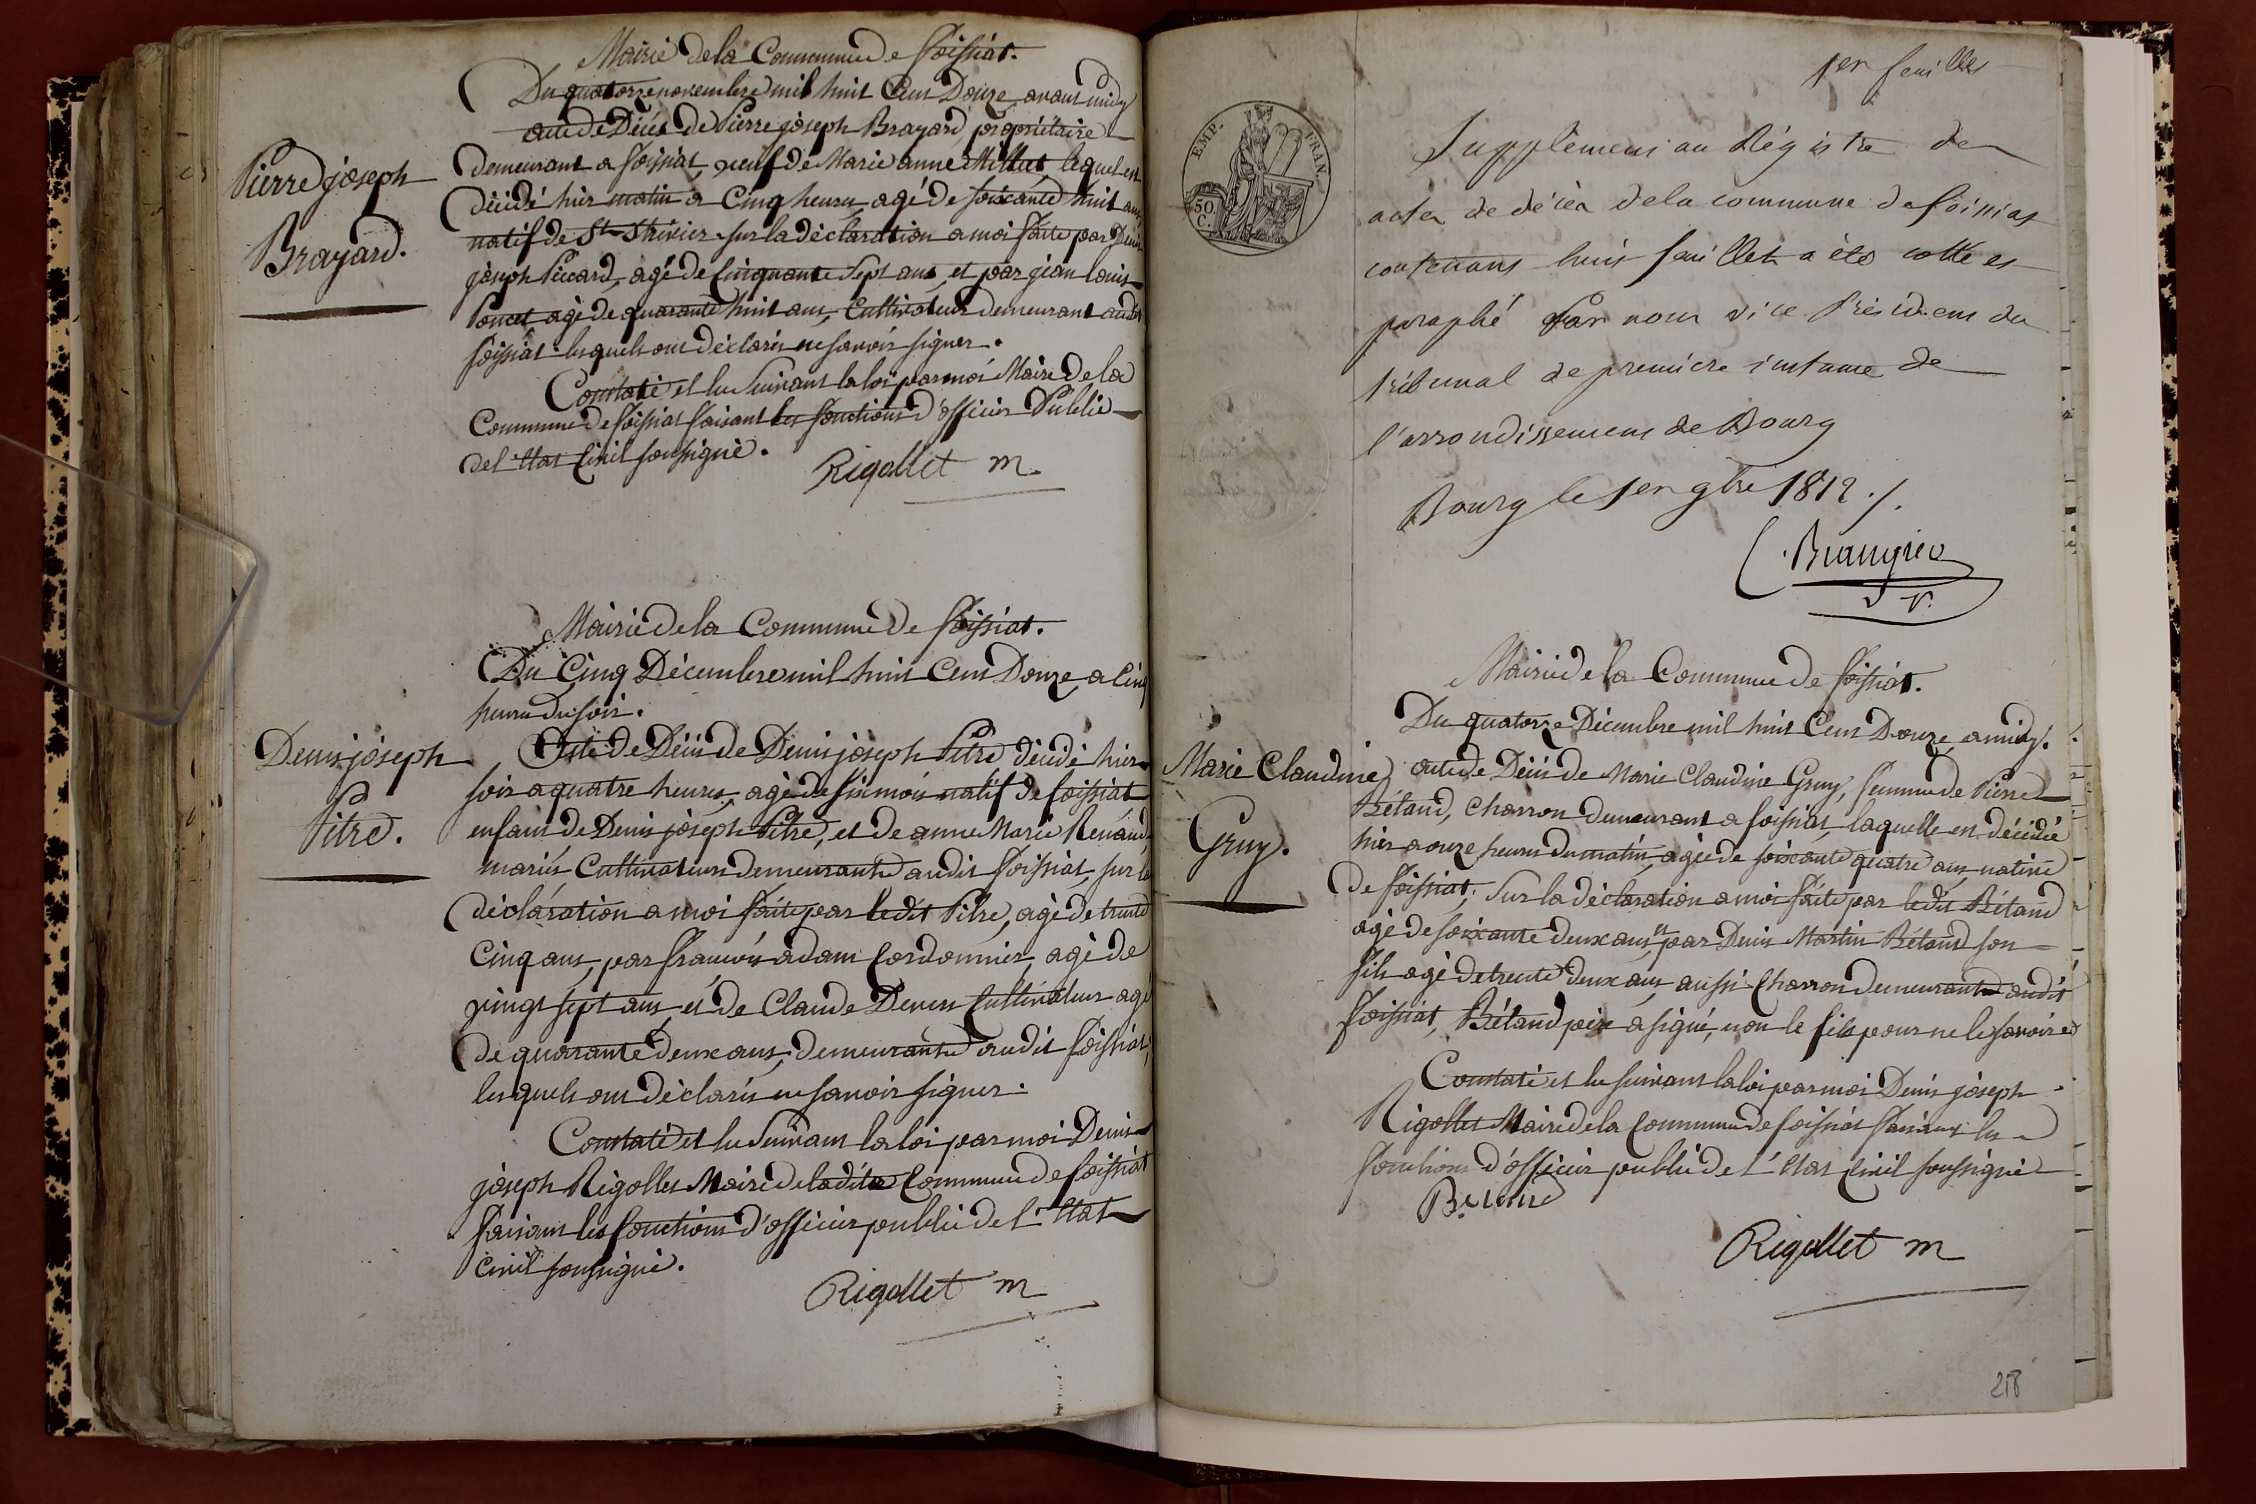 Mairie de la Commune de foissiat.
Du quatorze novembre mil huit Cent Douze avant midy
acte de Décès de Pierre joseph Brayard, propriétaire
demeurant a foissiat, veuf de Marie anne Millet, lequel est
décédé hier matin a Cinq heures, agé de soixante huit ans
natif de St trivier. sur la déclaration a moi faite par Denis
joseph Piccard, agé de Cinquante Sept ans, et par jean louis
Poncet, agé de quarante huit ans, Cultivateurs demeurant audit
foissiat. lesquels ont déclarés ne savoir signer.
Constaté et lu Suivant la loi par moi Maire de la
Commune de foissiat faisant les fonctions d'officier Public
de l'Etat Civil soussigné.
Rigollet m.
Pierre joseph
Brayard.
Mairie de la Commune de foissiat.
Du Cinq Décembre mil huit Cent Douze a Cinq
heures du soir.
Acte de Décès de Denis joseph Pitre décédé hier
soir a quatre heures, agé de six mois natif de foissiat
enfant de Denis joseph Pitre, et de anne Marie Renaud,
mariés Cultivateurs demeurants audit foissiat, sur la
déclaration a moi faite par ledit Pitre, agé de trente
Cinq ans, par françois adam Cordonnier, agé de
vingt sept ans, et de Claude Cultivateur agé
de quarante deux ans, demeurants audit foissiat,
lesquels ont déclarés ne savoir signer.
Constaté et lu Suivant la loi par moi Denis
joseph Rigollet Maire de ladite Commune de foissiat
faisant les fonctions d'officier public de l'Etat
Civil soussigné.
Rigollet m
Denis joseph
Pitre.
1er feuillet
EMP. FRAN.
50 C.
Supplément au Régistre des
actes de décès de la commune de foissiat
contenant huit feuillets a été cotté et
paraphé par nous vice Président du
tribunal de premiere instance de
l'arrondissement de Bourg
Bourg le 1er 9bre 1812 ./.
Mairie de la Commune de foissiat.
Du quatorze Décembre mil huit Cent Douze, a midy.
acte de Décès de Marie Claudine Gruy, femme de Pierre
Bétand, Charron demeurant a foissiat, laquelle est décédée
hier a onze heures du matin, agée de soixante quatre ans, native
de foissiat; Sur la déclaration a moi faite par ledit Bétand
agé de soixante deux ans, et par Denis Martin Bétand son
fils agé de trente deux ans, aussi Charron demeurants audit
foissiat, Bétand père a signé, non le fils pour ne le savoir
Constaté et lu suivant la loi par moi Denis joseph
Rigollet Maire de la Commune de foissiat faisant les
fonctions d'officier public de l'Etat Civil soussigné
Rigollet m
Marie Claudine
Gruy.
218